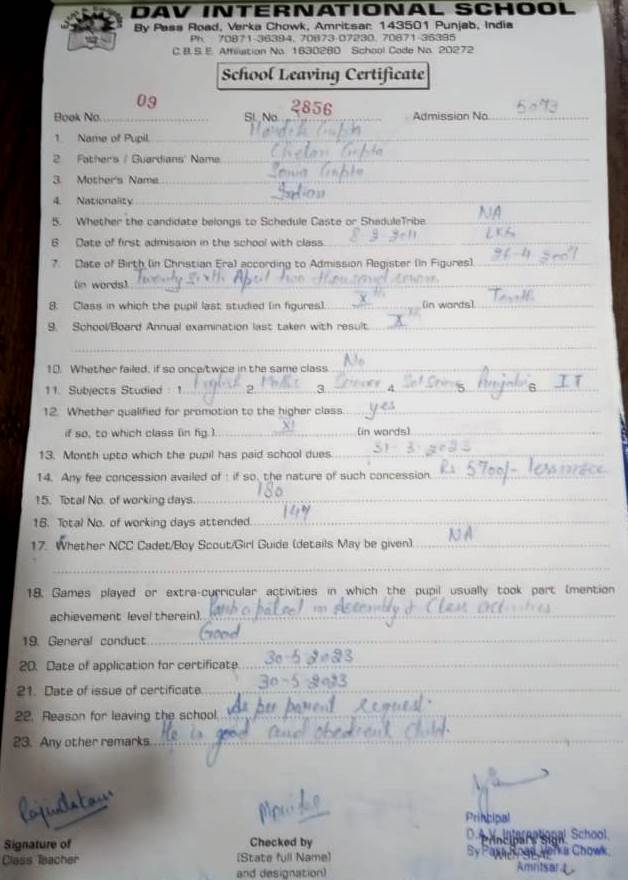 DAV INTERNATIONAL SCHOOL
By Pass Road, Verka Chowk, Amritsar. 143501 Punjab, India
Ph. : 70871-36394, 70873-07230, 70871-36395
C.B.S.E. Affiliation No. 1630280 School Code No. 20272
School Leaving Certificate
Book No. 09 Sl. No. 2856 Admission No. 5073
1. Name of Pupil Gupta
2. Father's / Guardians' Name Chetan Gupta
3. Mother's Name Sonia Gupta
4. Nationality Indian
5. Whether the candidate belongs to Schedule Caste or SheduleTribe NA
6. Date of first admission in the school with class 8-3-2011 LKG
7. Date of Birth (in Christian Era) according to Admission Register (in Figures) 26-4-2007
(in words) Twenty Sixth April two thousand seven
8. Class in which the pupil last studied (in figures) Xth (in words) Tenth
9. School/Board Annual examination last taken with result Xth
10. Whether failed, if so once/twice in the same class No
11. Subjects Studied : 1. English 2. Maths 3. Science 4. Sot Science 5. Punjabi 6. IT
12. Whether qualified for promotion to the higher class yes
if so, to which class (in fig.) XI (in words)
13. Month upto which the pupil has paid school dues 31-3-2023
14. Any fee concession availed of : if so, the nature of such concession Rs 5700/-
15. Total No. of working days 180
16. Total No. of working days attended 147
17. Whether NCC Cadet/Boy Scout/Girl Guide (details May be given) NA
18. Games played or extra-curricular activities in which the pupil usually took part (mention
achievement level therein) Participated in Assembly & Class activities
19. General conduct Good
20. Date of application for certificate 30-5-2023
21. Date of issue of certificate 30-5-2023
22. Reason for leaving the school As per parent request.
23. Any other remarks He is good and obedient child.
Signature of
Class Teacher
Checked by
(State full Name)
and designation)
Principal
D.A.V. International School,
Principal's Sign.
By Pass Road, Verka Chowk,
With SEAL
Amritsar